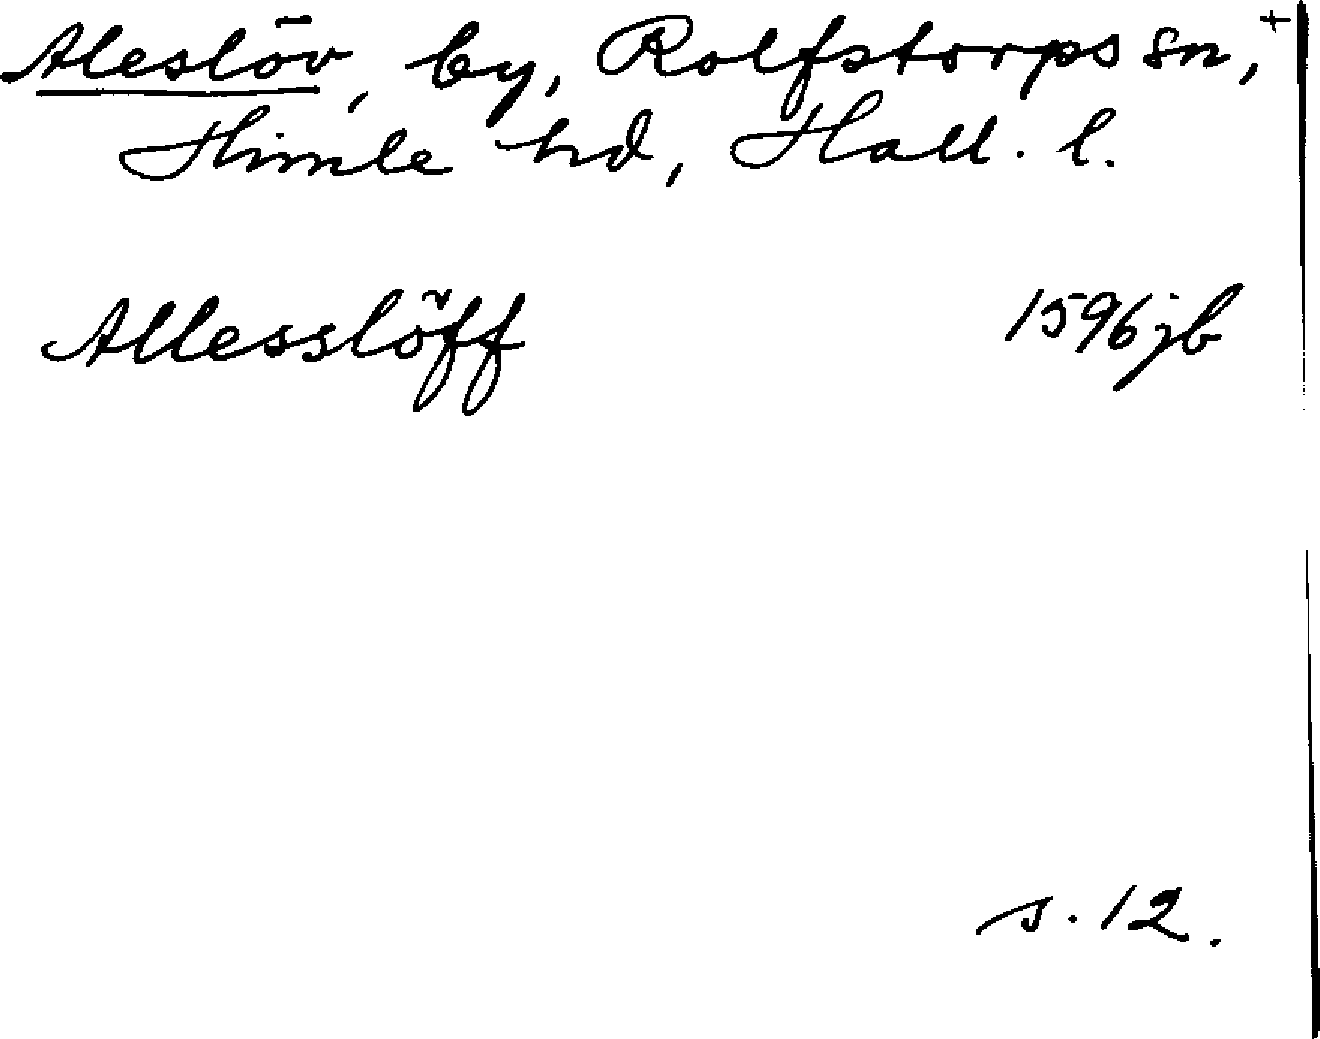 Aleslöv, by, Rolfstorps sn, +
Himle hd, Hall. l.
Allesslöff 1596 jb
s. 12.